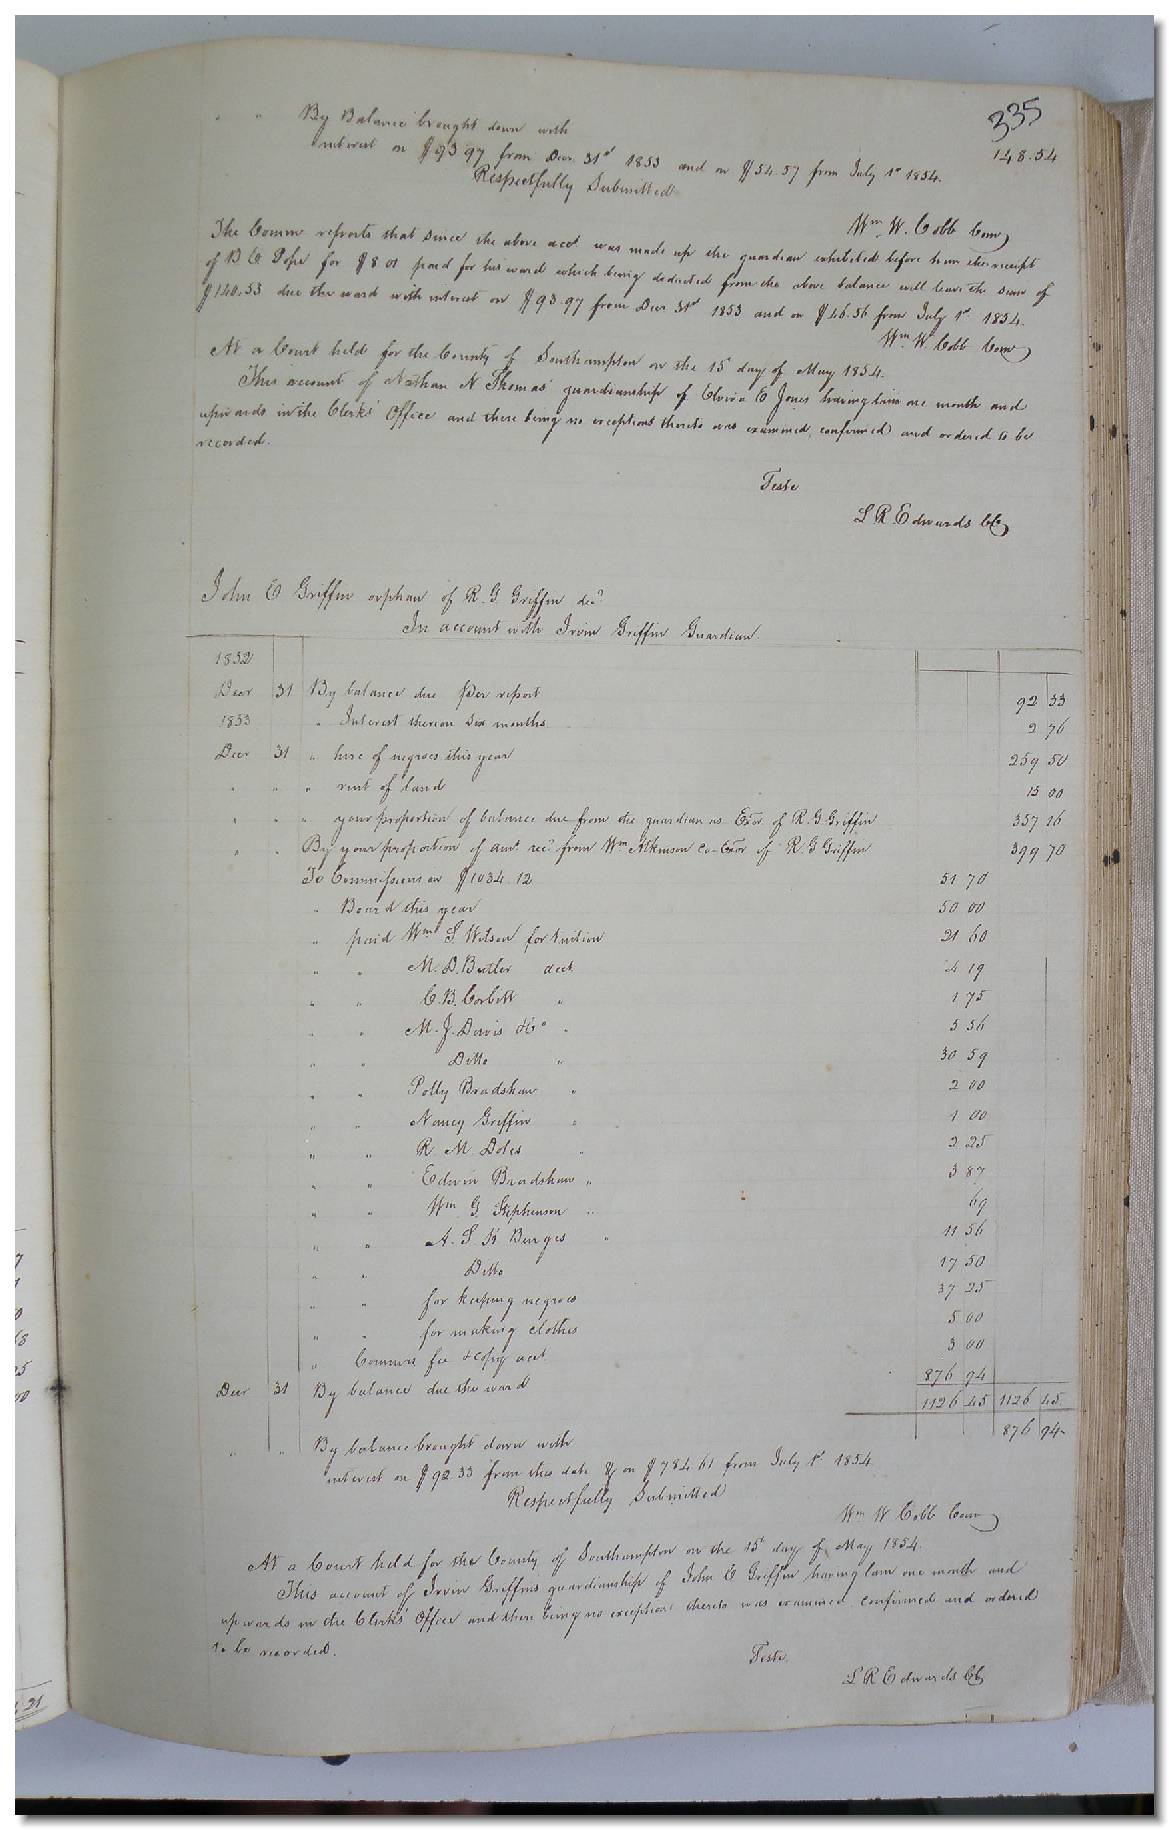 335
" " By Balance brought down with 148.54
interest on $93.97 from Decr 31st 1853 and on $54.57 from July 1st 1854.
Respectfully Submitted
Wm W. Cobb Com
The Comm reports that since the above acct was made up the guardian exhibited before him the receipt
of B E Pope for $8.01 paid for his ward which being deducted from the above balance will leave the sum of
$140.53 due the ward with interest on $93.97 from Decr 31st 1853 and on $46.56 from July 1st 1854.
Wm W. Cobb Com
At a Court held for the County of Southampton on the 15th day of May 1854.
This account of Nathan N Thomas' guardianship of Elvira E Jones having lain one month and
upwards in the Clerks' Office and there being no exceptions thereto was examined, confirmed and ordered to be
recorded.
Teste
L R Edwards CC
John E Griffin orphan of R. G. Griffin decd
In account with Irvin Griffin Guardian.
1852
Decr 31 By balance due per report 92 33
1853 " Interest thereon six months 2 76
Decr 31 " hire of negroes this year 259 50
" " " rent of land 15 00
" " " your proportion of balance due from the guardian as Exor of R. G. Griffin 357 16
" " By your proportion of amt recd from Wm Atkinson Co-Exor of R. G Griffin 399 70
To Commissions on $1034.12 51 70
" Board this year 50 00
" paid Wm S. Wilson for tuition 21 60
" " M. D. Butler acct 4 19
" " C. B. Corbett " 1 75
" " M. J. Davis & Co " 5 56
" " Ditto " 30 59
" " Polly Bradshaw " 2 00
" " Nancy Griffin " 1 00
" " R. M. Doles " 2 25
" " Edwin Bradshaw " 3 87
" " Wm G. Stephenson " 69
" " A. S. K Burges " 11 56
" " Ditto 17 50
" " for keeping negroes 37 25
" " for making clothes 5 00
" Commrs fee & copy acct 3 00
Decr 31 By balance due the ward 876 94
1126 45 1126 45
" " By balance brought down with 876 94
interest on $92.33 from this date & on $784.61 from July 1st 1854
Respectfully Submitted
Wm W Cobb Com
At a Court held for the County of Southampton on the 15th day of May 1854.
This account of Irvin Griffins guardianship of John E Griffin having lain one month and
upwards in the Clerks' Office and there being no exceptions thereto was examined confirmed and ordered
to be recorded.
Teste.
L R Edwards CC
21